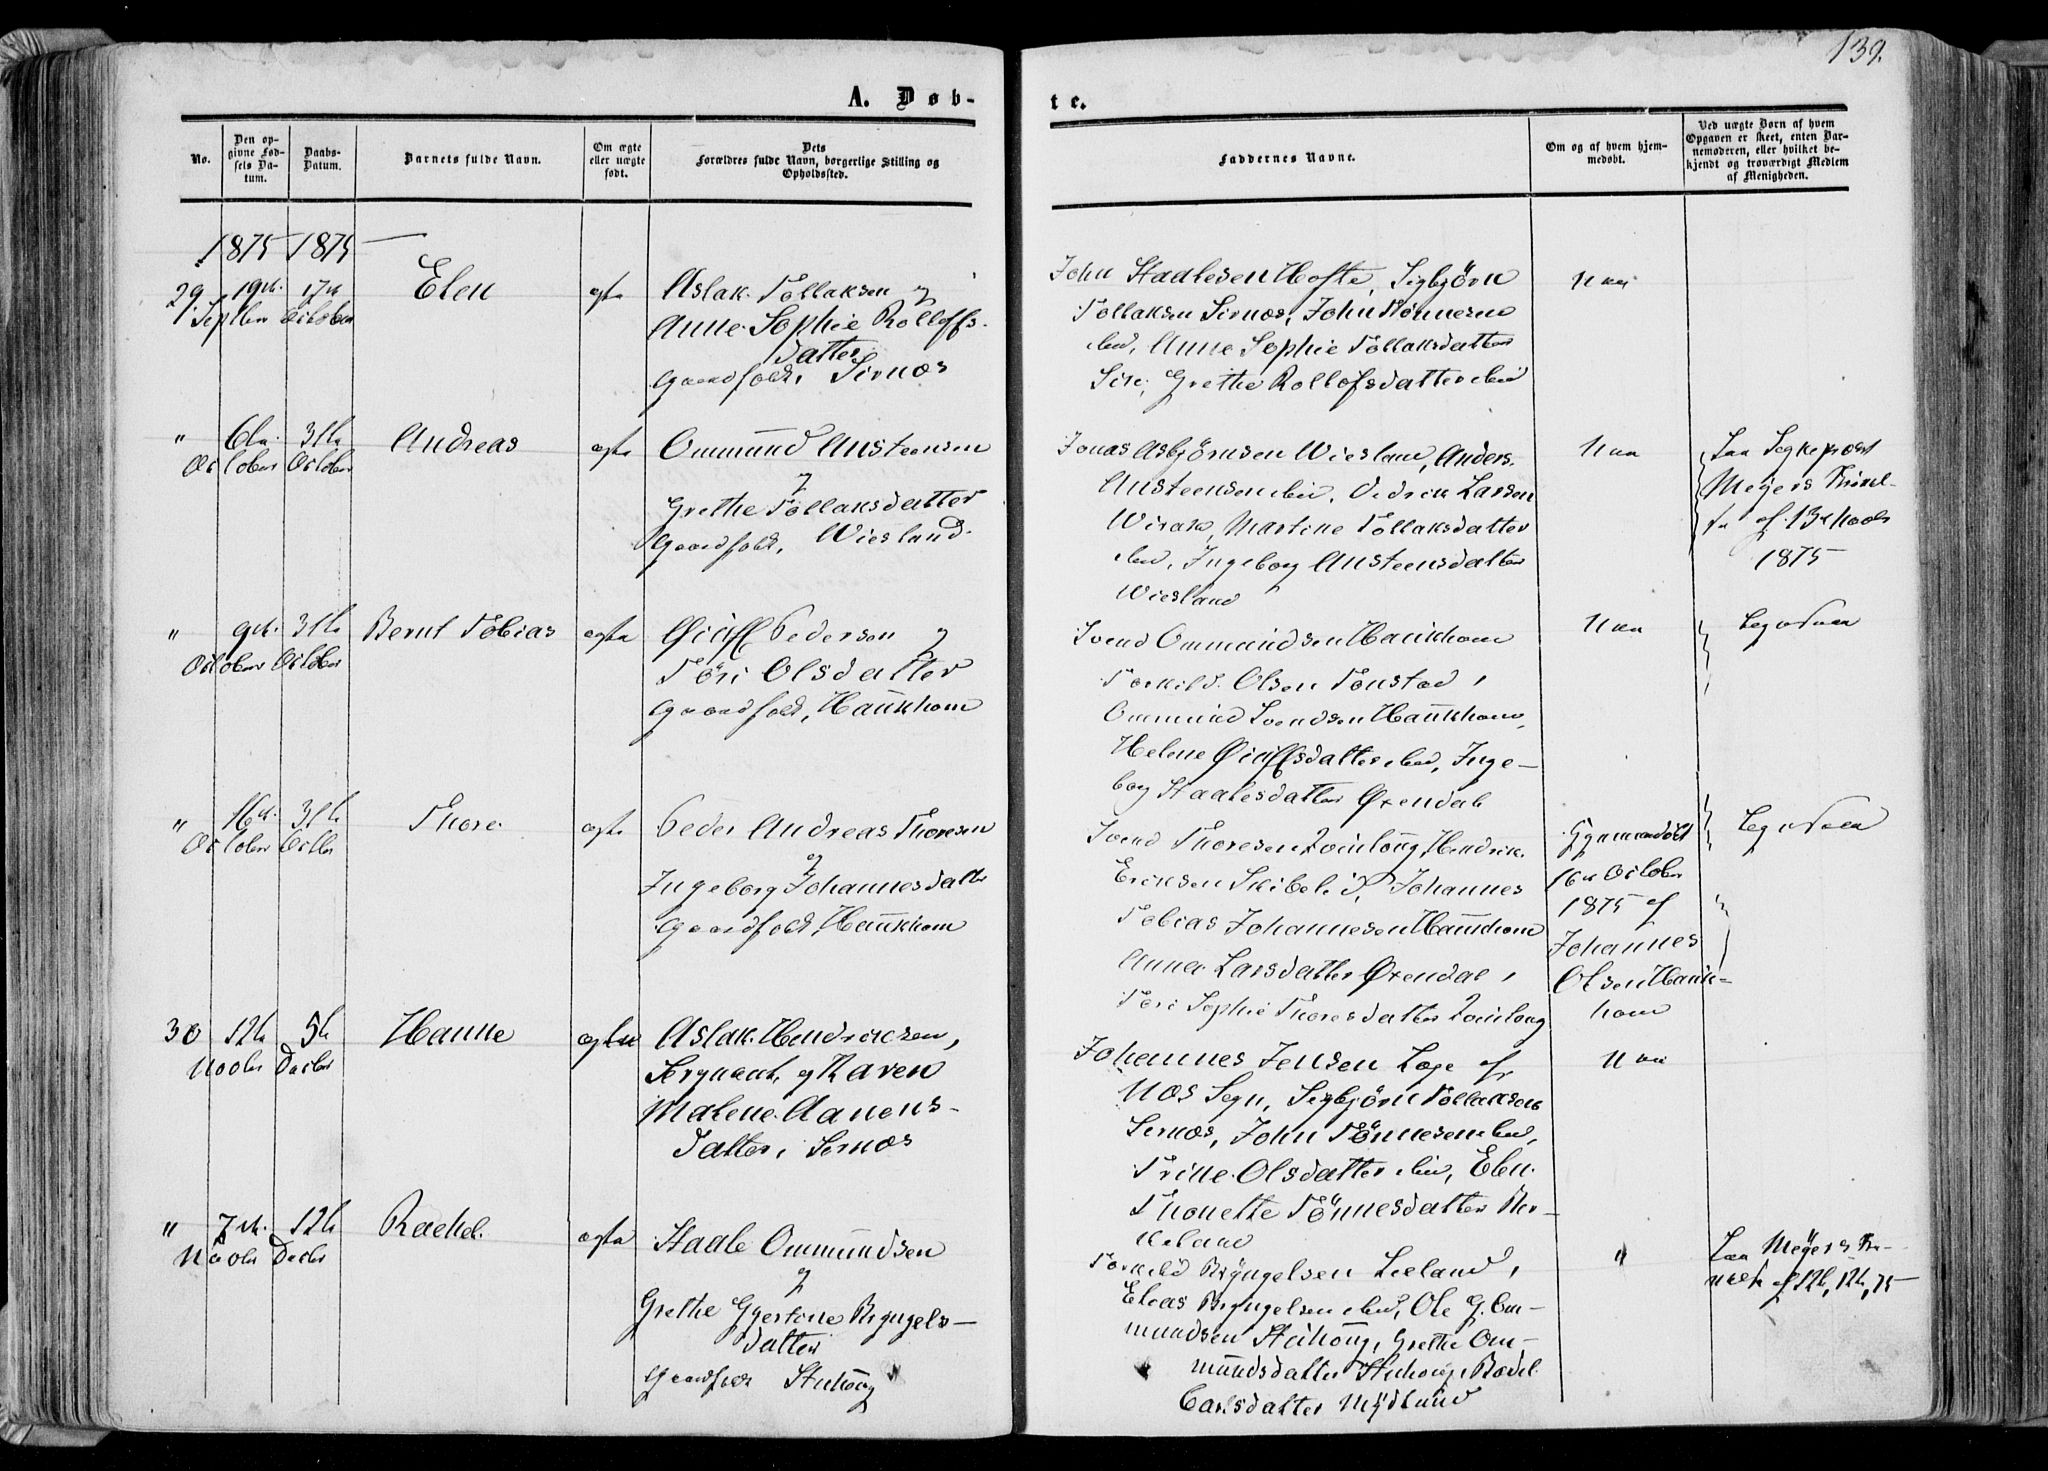 139.
A. Døb-
te.
No.
Den op-
givne Fød-
sels Da-
tum.
Daabs-
Datum.
Barnets fulde Navn.
Om ægte
eller uægte
født.
Dets
Forældres fulde Navn, borgerlige Stilling og
Opholdssted.
Faddernes Navne.
Om og af hvem hjem-
medøbt.
Ved uægte Børn af hvem
Opgaven er skeet, enten Bar-
nemoderen, eller hvilket be-
kjendt og troværdigt Medlem
af Menigheden.
1875 1875
29 19de 17de
Septbr October
Elen
ægte
Aslak Tollaksen og
Anne Sophie Rolloffs-
datter
Gaardfolk, Sirnæs
John Staalesen Hofte, Sigbjörn
Tollaksen Sirnæs, John Tönnesen
ibid, Anne Sophie Tollaksdatter
Grethe Rollofsdatter ibid
" 6te 31te
October October
Andreas
ægte
Ommund Austeensen
og
Grethe Tollaksdatter
Gaardfolk, Wiesland.
Jonas Asbjörnsen Wiesland, Anders
Austeensen ibid, Larsen
Wirak, Martine Tollaksdatter
ibid, Ingeborg Austeensdatter
Wiesland
Nei
Meyers
af 13de Novbr
1875
" 9de 31te
October October
Bernt Tobias
ægte
Pedersen og
Töri Olsdatter
Gaardfolk, Haukhom
Svend Ommundsen Haukhom
Torkild Olsen Tonstad,
Ommund Svendsen Haukhom,
Helene ibid, Inge-
borg Staalesdatter Øxendal
Nei
" 16de 31te
October Octbr
Thore
ægte
Peder Andreas Thoresen
og
Ingeborg Johannesdatter
Gaardfolk, Haukhom
Svend Thoresen Qvinlaug, Hendrik
Eriksen Skibeli, Johannes
Tobias Johannesen Haukhom
Anne Larsdatter Øxendal,
Tori Sophie Thoresdatter Qvinlaug
Hjemmedöbt
16de October
1875 af
Johannes
Olsen Hauk-
hom
30 12te 5te
Novbr Decbr
Hanne
ægte
Aslak Hendriksen,
Sergeant, og Karen
Malene Aanens-
datter, Sirnæs
Johannes Jensen Loge af
Næs Sogn, Sigbjörn Tollaksen
Sirnæs, John Tönnesen ibid,
Trine Olsdatter ibid, Elen
Thonette Tönnesdatter
Nei
" 7de 12te
Novbr Decbr
Rachel
ægte
Staale Ommundsen
og
Grethe Gjertine Bryngels-
datter
Gaardfolk Stuhoug
Torkild Bryngelsen Lieland,
Elias Bryngelsen ibid, Ole G. Om-
mundsen Stuhoug, Grethe Om-
mundsdatter Stuhoug, Bodel
Carlsdatter Mydlund
"
Meyers